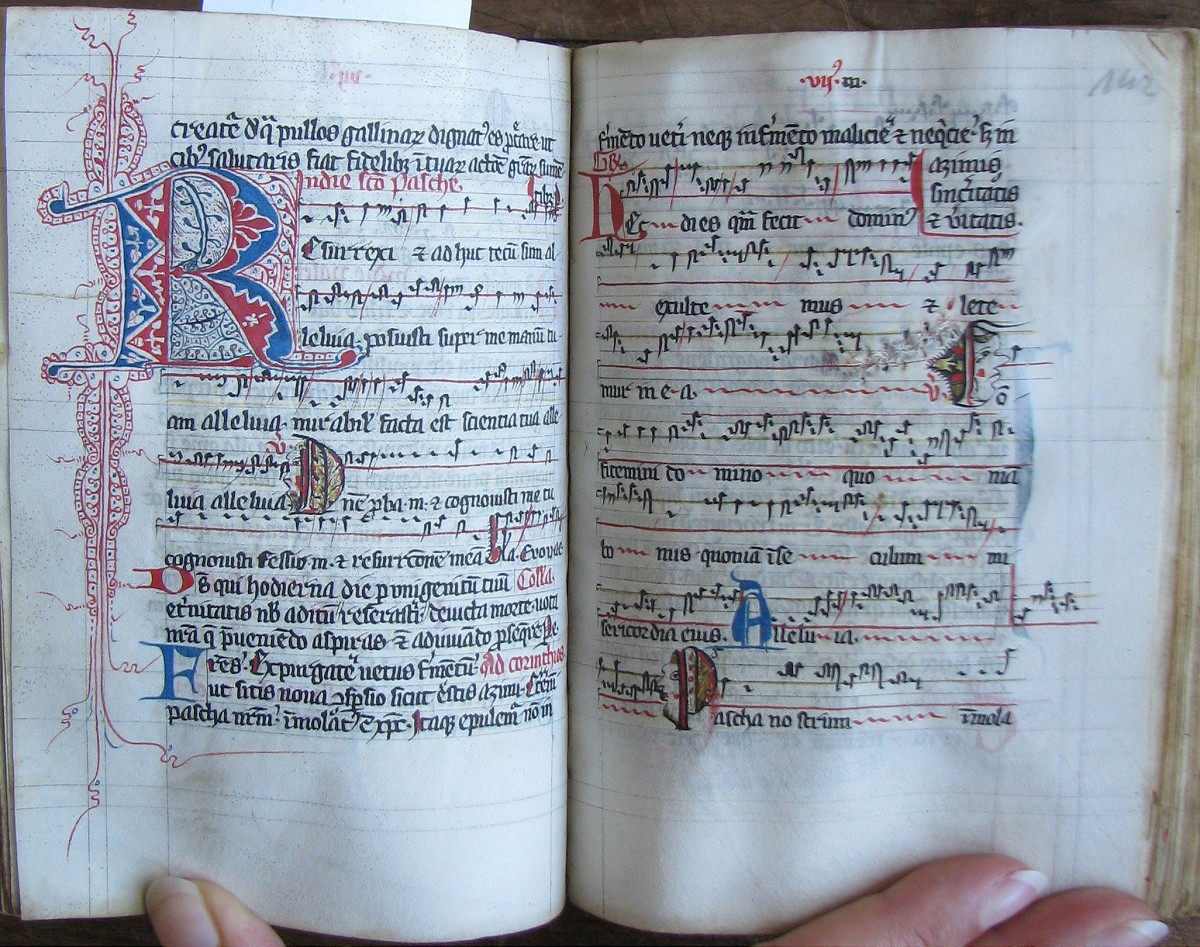 ·iii·
creatē d̄q̄ pullos gallinaꝝ dignatꝰ es p̄tare ut
cibꝰ salutaris fiat fidelibꝫ ī tuaꝝ actōe
Indie sc̄o Pasche.
Esurrexi ⁊ ad huc tecū sum al
leluia posuisti super me manū tu
am alleluia. mirabil' facta est scientia tua alle
luia alleluia. v̄ Dn̄e p̄ba. m. ⁊ cognouisti me tu
cognouisti sessio. m. ⁊ resurrc̄one meā Gl'a Euouae
Ds̄ qui hodierna die p unigenitū tuū Coll'a.
et'nitatis nb̄ aditū reserasti deuicta morte uota
n̄ra q̄ pueniēdo aspiras ⁊ adiuuādo p̄seq̄re Pe
Fres. Expurgate uetus f'mētū. Ad corinthios
ut sitis noua ꝯspsio sicut estis azimi. Eteni
pascha nr̄m īmolatꝰ ē xp̄c. Itaqꝫ epulem' nō in
·vijꝰ·m·
f'mēto uet'i neqꝫ in f'mēto malicie ⁊ neq̄cie. sꝫ in
azimis
sinc'itatis
⁊ u'itatis.
Hec dies quā fecit dominꝰ
exulte mus ⁊ lete
mur in e a. v̄ Cō
fitemini do mino quo niā
bo nus quoniā ī se culum mi
sericordia eius. Allelu ia.
Pascha nostrum īmola